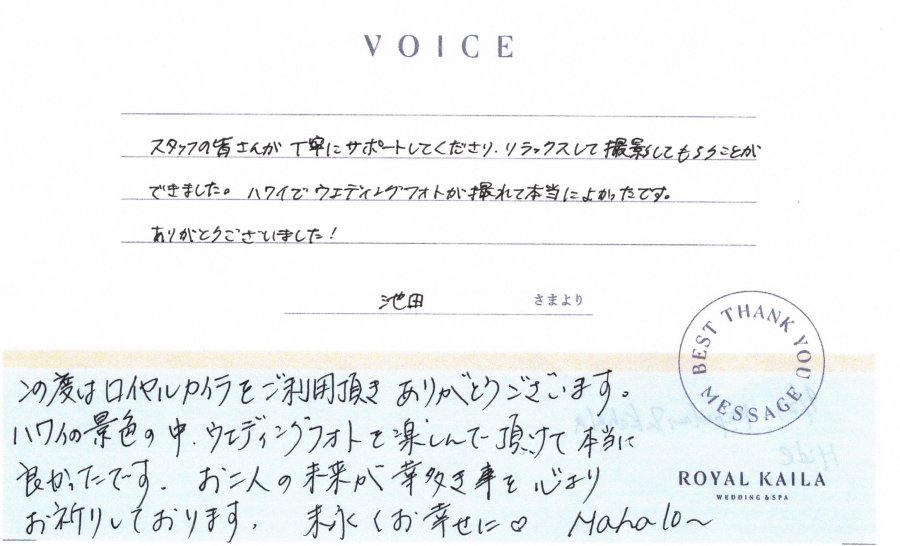 VOICE
スタッフの皆さんが丁寧にサポートしてくださり、リラックスして撮影してもらうことが
できました。ハワイでウエディングフォトが撮れて本当によかったです。
ありがとうございました!
池田 さまより
BEST THANK YOU MESSAGE
この度はロイヤルカイラをご利用頂きありがとうございます。
ハワイの景色の中、ウエディングフォトを楽しんで頂けて本当に
良かったです。お二人の未来が幸多き事を心より
お祈りしております。末永くお幸せに♡ Mahalo~
ROYAL KAILA
WEDDING & SPA